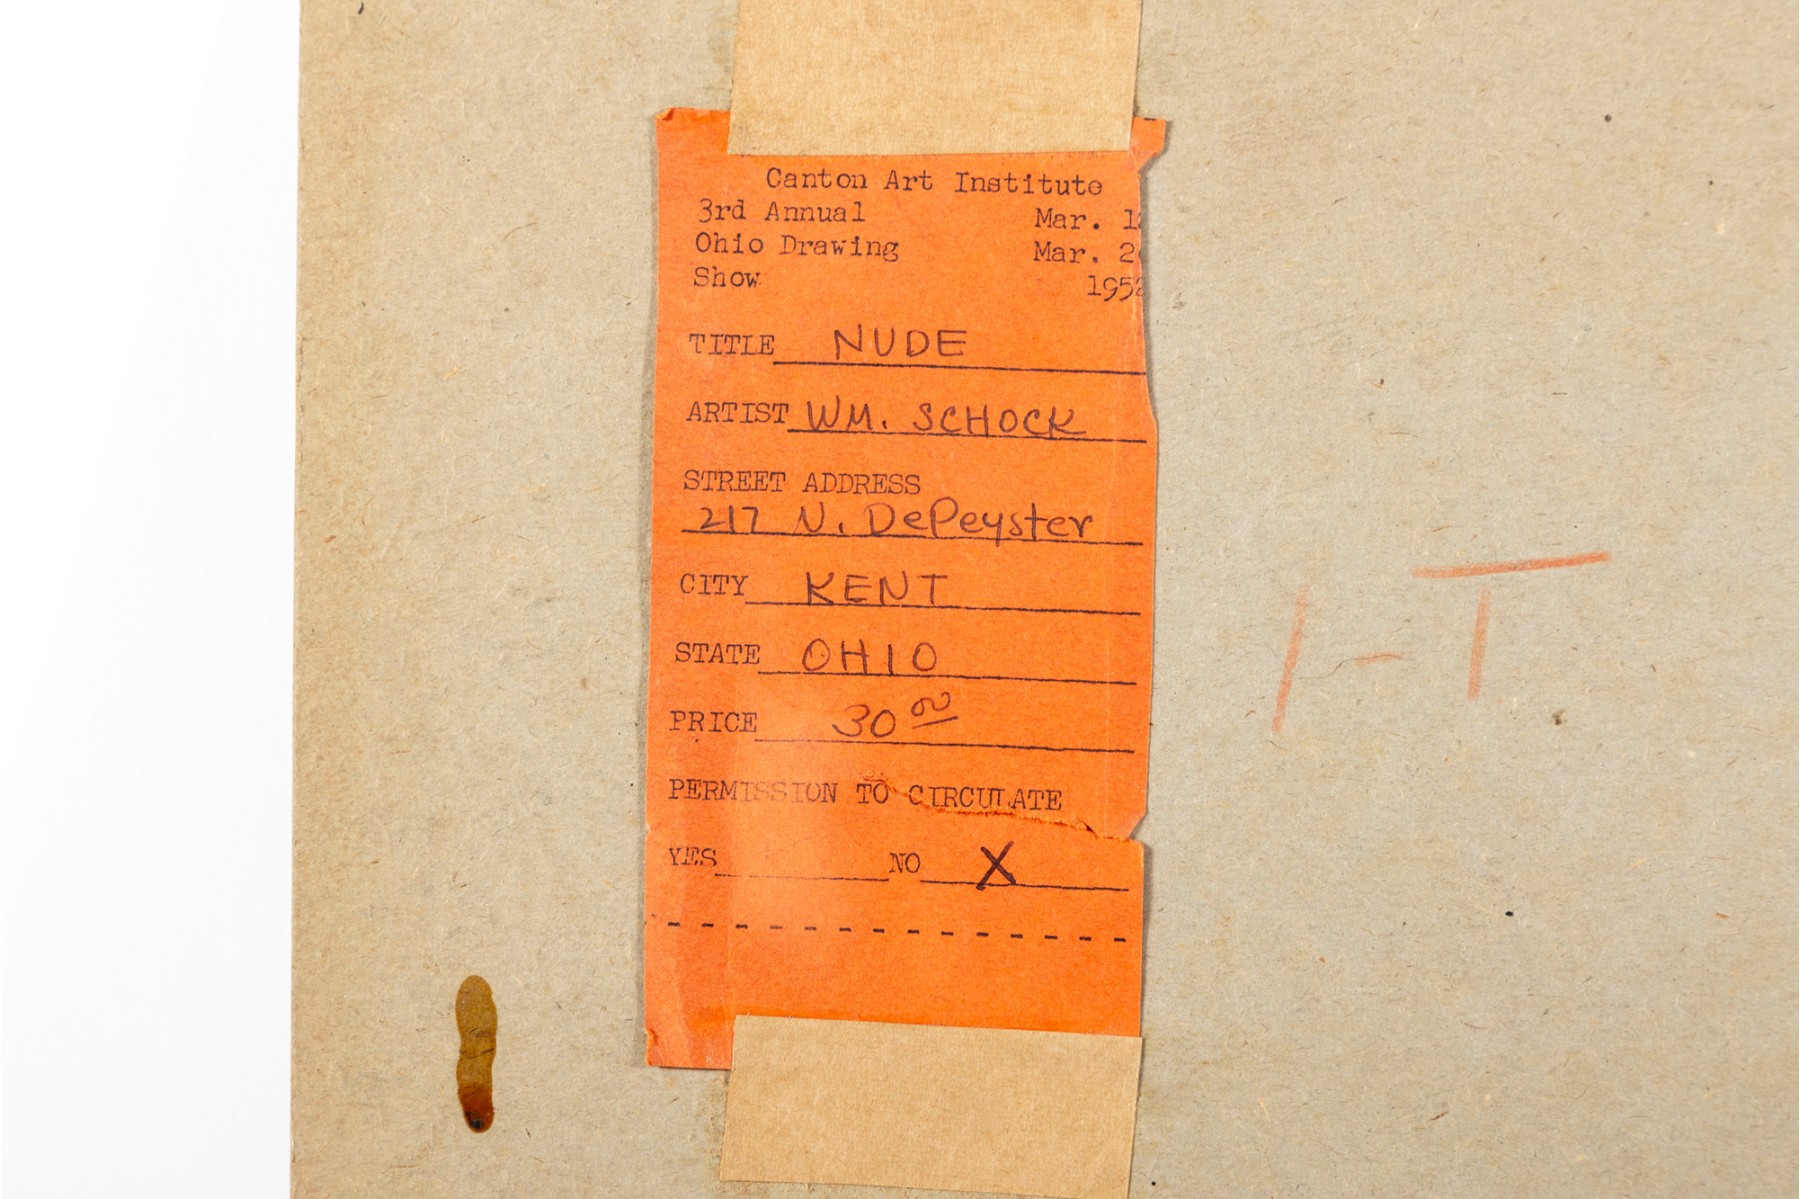 Canton Art Institute
3rd Annual Mar. 1
Ohio Drawing Mar. 2
Show 1952
TITLE NUDE
ARTIST WM. SCHOCK
STREET ADDRESS
217 N. DePeyster
CITY KENT
STATE OHIO
PRICE 30 00
PERMISSION TO CIRCULATE
YES NO X
1-T